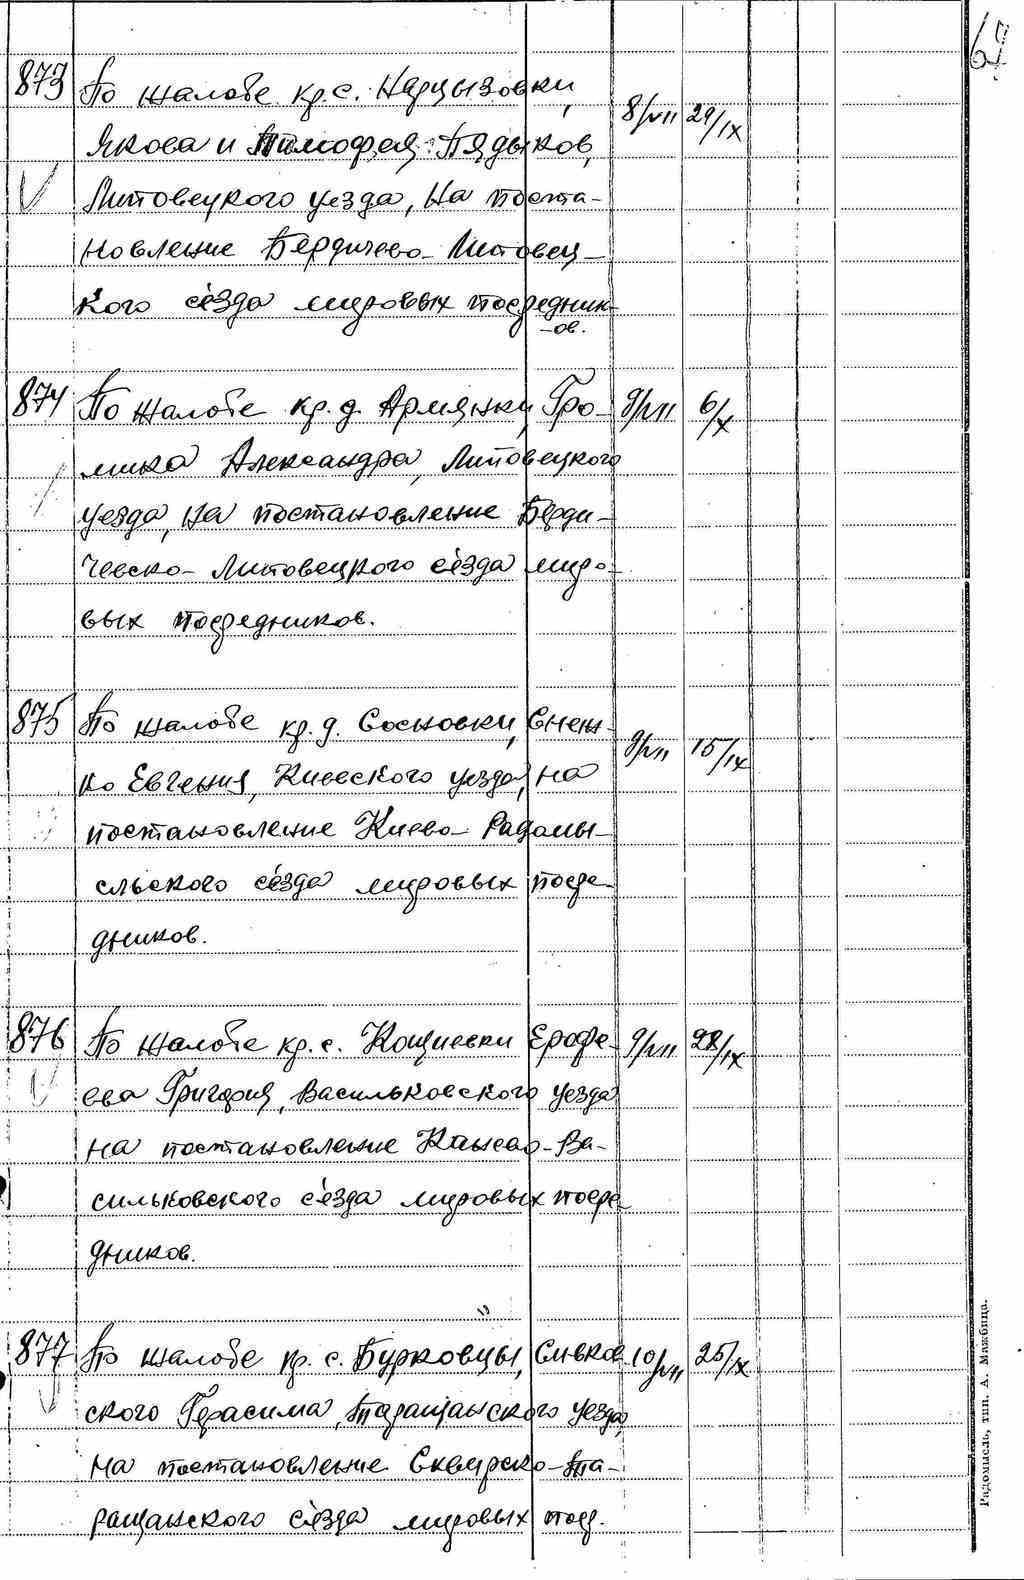 873 По жалобе кр. с. Нарцызовки,
Якова и Тимофея Пядыков, 8/VII 29/IX
Липовецкого уезда, на поста-
новление Бердичево-Липовец-
кого сьезда мировых посредник-
-ов.
874 По жалобе кр. д. Армянки, Гро- 9/VII 6/X
мика Александра, Липовецкого
уезда, на постановление Берди-
чевско-Липовецкого сьезда миро-
вых посредников.
875 По жалобе кр. д. Сосновки, Снеж-
ко Евгения, Киевского уезда, на 9/VII 15/IX
постановление Киево-Радомы-
сльского сьезда мировых посре-
дников.
876 По жалобе кр. с. Кощиевки Ерофе- 9/VII 28/IX
ева Григория, Васильковского уезда
на постановление Канево-Ва-
сильковского сьезда мировых посре-
дников.
877 По жалобе кр. с. Бурковцы, Сивков 10/VII 25/IX
ского Герасима, Таращанского уезда,
на постановление Сквирско-Та-
ращанского сьезда мировых поср.
Радомысль, тип. А. Мажбица.